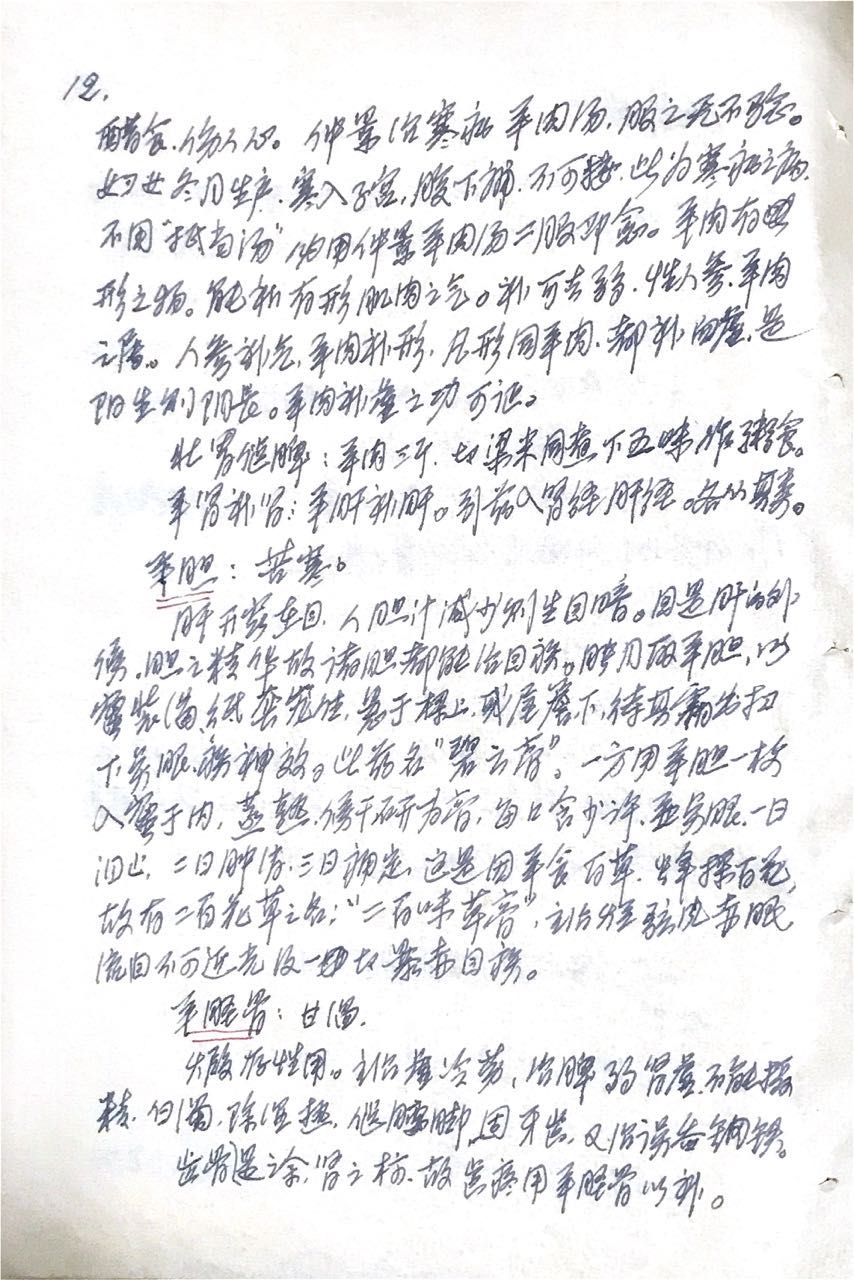 12.
醋食、伤人心。仲景治寒疝羊肉汤，服之无不验。
妇女冬月生产，寒入子宫，腹下痛，不可按，此为寒疝之病，
不用"抵当汤"，仍用仲景羊肉汤二服即愈。羊肉有
形之物。能补有形肌肉之气。补可去弱，人参、羊肉
之属。人参补气，羊肉补形，凡形同羊肉，都补血虚，是
阳生则阴长。羊肉补虚之功可证。
壮胃健脾：羊肉三斤，切梁米同煮下五味作粥食。
羊肾补肾：羊肝补肝。引药入肾经肝经。各从其类。
羊胆：苦寒。
肝开窍在目，人胆汁减少则生目暗。目是肝的外
候，胆之精华故诸胆都能治目疾。腊月取羊胆，以
蜜装满，纸套笼住，悬于梁上，或屋檐下，待其霜出扫
下点眼，神效。此药名"碧云膏"。一方用羊胆一枚
入蜜于内，蒸熟，候干研为膏，每口含少许，并点眼，一日
泪止，二日肿消，三日痛定，这是因羊食百草，蜂采百花，
故有二百花草之名："二百味草膏"，主治 风赤眼，
流泪不可近光及一切暴赤目疾。
羊胫骨：甘温。
火煅存性用。主治虚冷劳，治脾弱肾虚，不能摄
精，白浊，除湿热，健腰脚，固牙齿，又治误吞铜钱。
齿骨是之余，肾之标，故齿疼用羊胫骨以补。